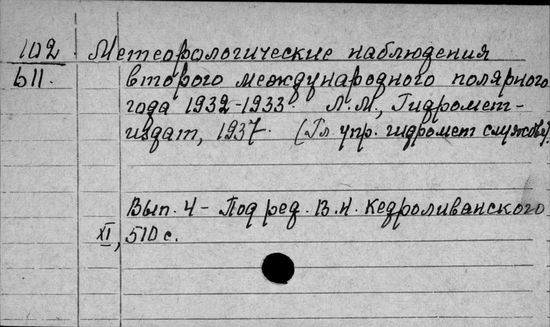 102 Метеорологические наблюдения
Б11. второго международного полярного
года 1932-1933. Л.М., Гидромет-
издат, 1937. (Гл. упр. гидромет службы).
Вып. 4 - Под ред. В.Н. Кедроливанского
XI, 510 с.